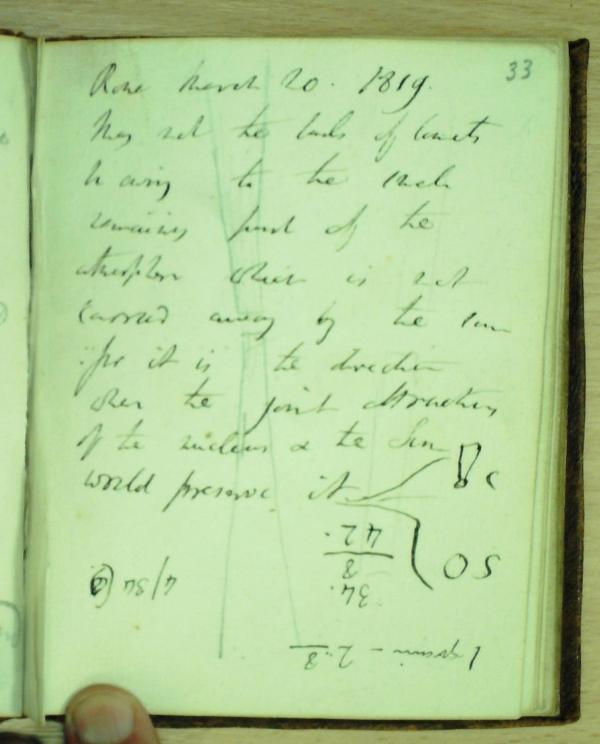 33
Rome March 20. 1819.
May not the tails of Comets
be owing to the
remaining part of the
atmosphere which is not
carried away by the sun
for it is the direction
when the joint attraction
of the nucleus & the Sun
would preserve it
C
S
42.
8
34.
4/34